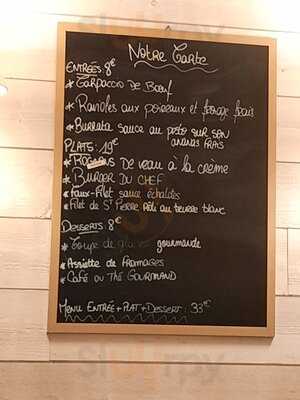 Notre Carte
ENTRÉES 8€
* Carpaccio DE BOEUF
* Ravioles aux poireaux et fromage frais
* Burrata sauce au pesto sur son
ananas frais
PLATS: 19€
* Rognons DE veau à la crème
* BURGER DU CHEF
* Faux-Filet sauce échalotes
* Filet de St Pierre Rôti au beurre blanc
DESSERTS 8€
* Coupe de glaces gourmande
* Assiette de fromages
* CAFÉ OU THÉ GOURMAND
MENU ENTRÉE+PLAT+DESSERT: 33€